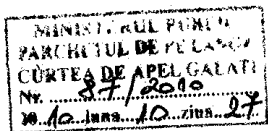 MINISTERUL PUBLIC
PARCHETUL DE PE LÂNGĂ
CURTEA DE APEL GALAȚI
Nr. 87/2010
20.10 luna 10 ziua 27